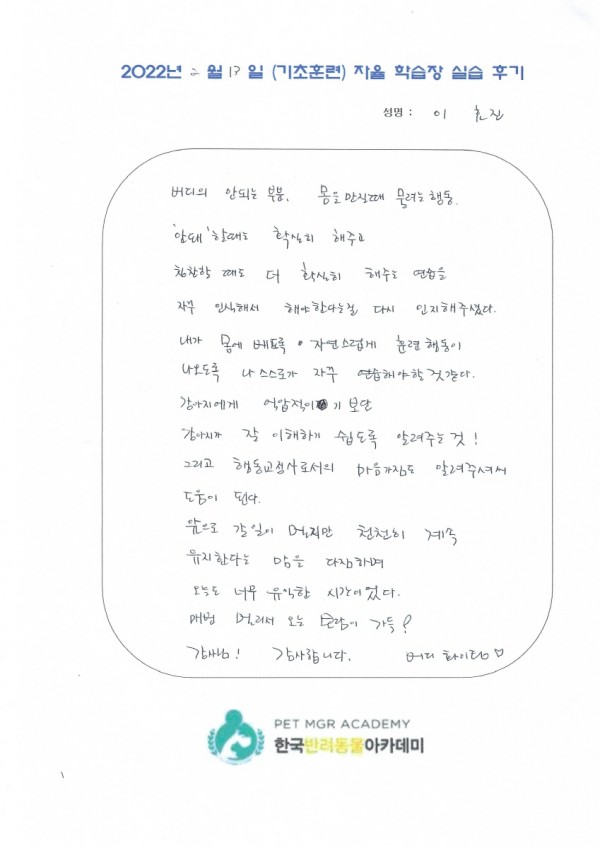 2022년 2 월 17 일 (기초훈련) 자율 학습장 실습 후기
성명 : 이 효진
버디의 안되는 부분, 몸을 만질때 물려는 행동.
'안돼' 할때도 확실히 해주고
칭찬할 때도 더 확실히 해주는 연습을
자꾸 인식해서 해야한다는걸 다시 인지해주셨다.
내가 몸에 베도록 자연스럽게 훈련 행동이
나오도록 나 스스로가 자꾸 연습해야할 것같다.
강아지에게 억압적이기 보단
강아지가 잘 이해하기 쉽도록 알려주는 것!
그리고 행동교정사로서의 마음가짐도 알려주셔서
도움이 된다.
앞으로 갈 일이 멀지만 천천히 계속
유지한다는 맘을 다짐하며
오늘도 너무 유익한 시간이었다.
매번 멀리서 오는 보람이 가득?
강사님! 감사합니다. 버디 화이팅 ♡
PET MGR ACADEMY
한국반려동물아카데미